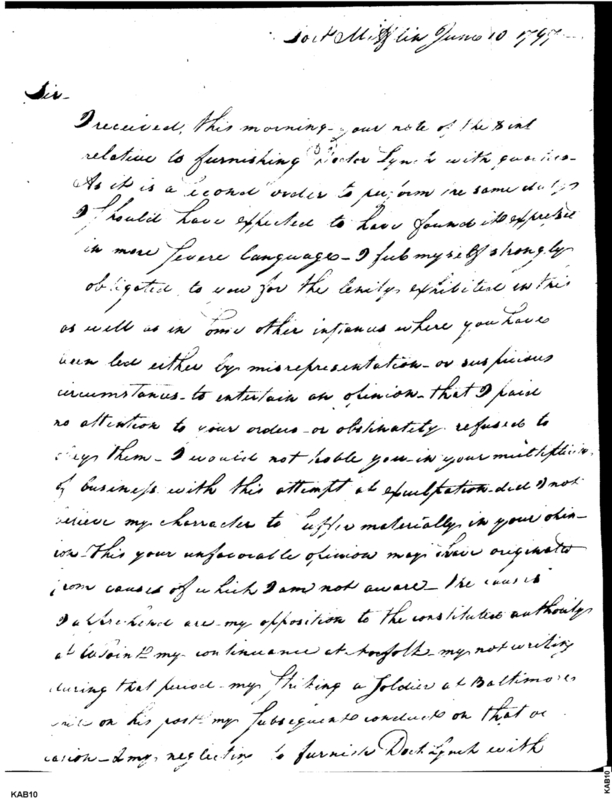 Fort Mifflin June 10 1797
Sir-
I received, this morning- your note of the 8 inst
relative to furnishing Doctor Lynch with quarters-
As it is a second order to perform the same duty
I should have expected to have found it expressed
in more severe language- I feel myself strongly
obligated to you for the lenity exhibited in this
as well as in some other instances where you have
been led either by misrepresentation- or suspicious
circumstances- to entertain an opinion- that I paid
no attention to your orders- or obstinately refused to
obey them- I would not trouble you- in your multiplicity
of business with this attempt at exculpation- did I not
believe my character to suffer materially in your opin-
ion- this your unfavorable opinion may have originated
from causes of which I am not aware- the causes
I apprehend are- my opposition to the constituted authority
at W Point- my continuance at Norfolk- my not writing
during that period- my striking a Soldier at Baltimore
on his post- my subsequent conduct on that oc
casion- & my neglecting to furnish Doct Lynch with
KAB10
KAB10